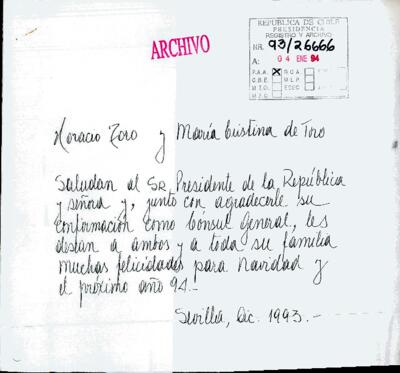 ARCHIVO
REPUBLICA DE CHILE
PRESIDENCIA
REGISTRO Y ARCHIVO
NR. 93/26666
A: 04 ENE 94
P.A.A. X R.C.A.
C.B.E. M.L.P.
M.T.O. EDEC
M.Z.C.
Horacio Toro y María Cristina de Toro
Saludan al Sr. Presidente de la República
y señora y, junto con agradecerle su
confirmación como Cónsul General, les
desean a ambos y a toda su familia
muchas felicidades para Navidad y
el próximo año 94.-
Sevilla, Dic. 1993.-